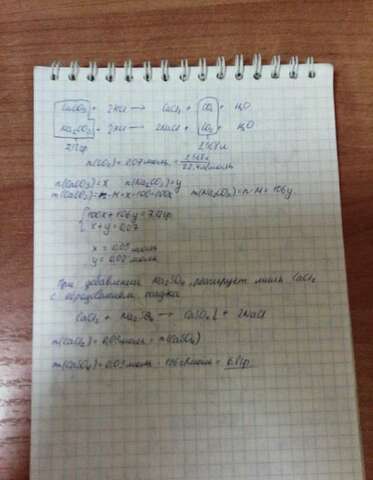 CaCO₃ + 2HCl → CaCl₂ + CO₂ + H₂O
Na₂CO₃ + 2HCl → 2NaCl + CO₂ + H₂O
7,12гр 1,568л
n(CO₂) = 0,07моль = 1,568л / 22,4л/моль
n(CaCO₃) = x n(Na₂CO₃) = y
m(CaCO₃) = n · M = x · 100 = 100x m(Na₂CO₃) = n · M = 106y
100x + 106y = 7,12гр
x + y = 0,07
x = 0,05 моль
y = 0,02 моль
При добавлении Na₂SO₄ реагирует лишь CaCl₂
с образованием осадка
CaCl₂ + Na₂SO₄ → CaSO₄↓ + 2NaCl
n(CaCl₂) = 0,05моль = n(CaSO₄)
m(CaSO₄) = 0,05 моль · 136г/моль = 6,8гр